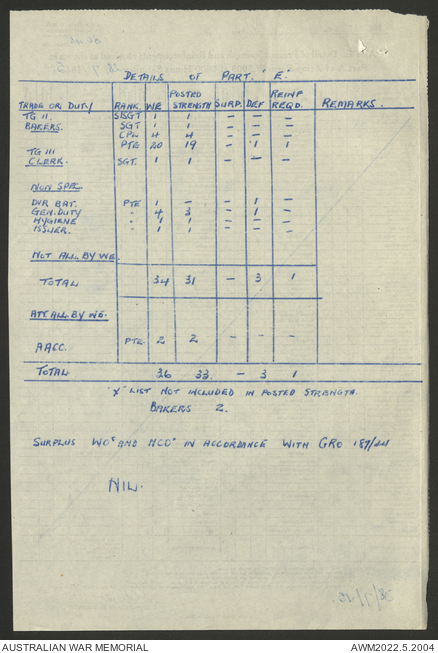 DETAILS OF PART. "E".
TRADE OR DUTY RANK. WE POSTED STRENGTH SURP. DEF REINF REQD. REMARKS.
TG II. S/SGT 1 1 - - -
BAKERS. SGT 1 1 - - -
CPL 4 4 - - -
PTE 20 19 - 1 1
TG III
CLERK. SGT. 1 1 - - -
NON SPEC.
DVR BAT. PTE 1 - - 1 -
GEN. DUTY " 4 3 - 1 -
HYGIENE " 1 1 - - -
ISSUER. " 1 1 - - -
NOT ALL. BY WE.
TOTAL 34 31 - 3 1
ATT. ALL. BY WE.
AACC. PTE. 2 2 - - -
TOTAL 36 33. - 3 1
"X" LIST NOT INCLUDED IN POSTED STRENGTH.
BAKERS 2.
SURPLUS WOs AND NCOs IN ACCORDANCE WITH GRO 187/44
NIL.
AUSTRALIAN WAR MEMORIAL AWM2022.5.2004